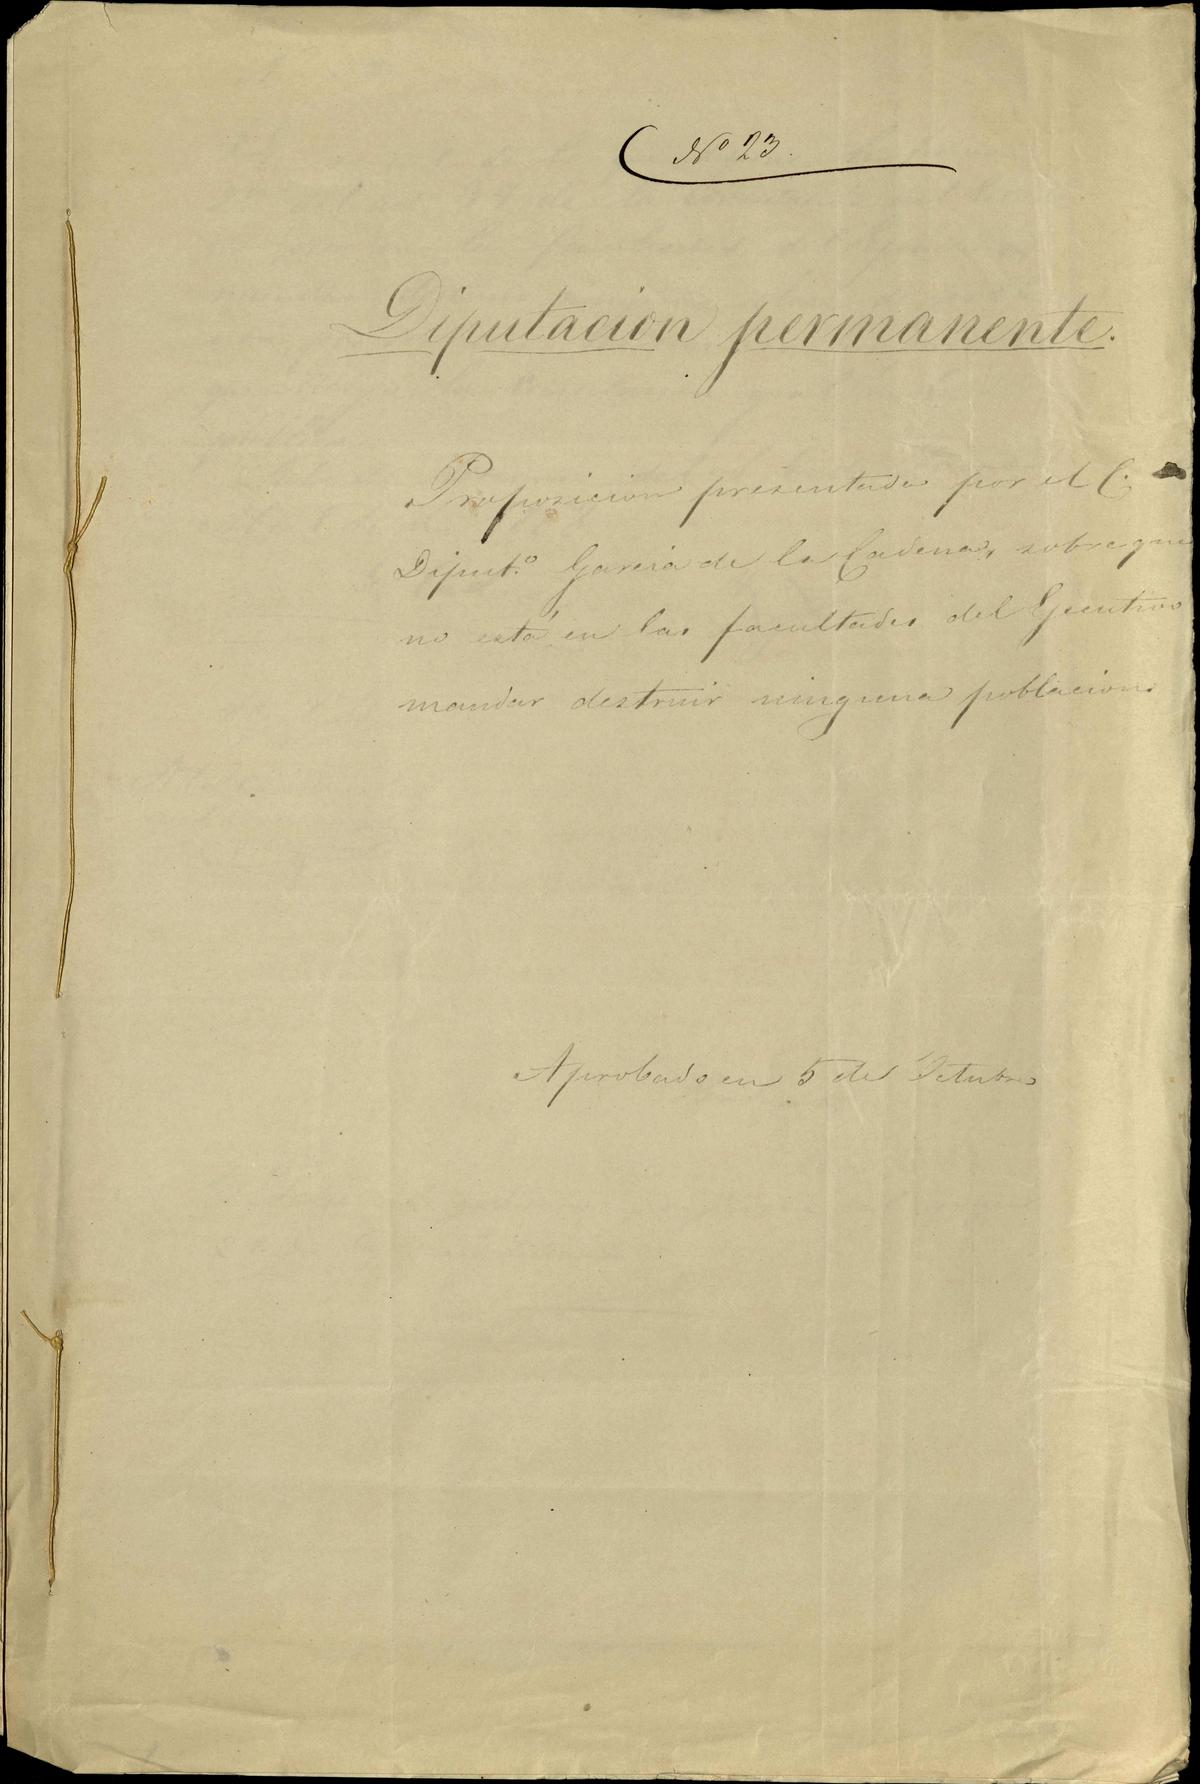 Nº 23.
Diputacion permanente.
Proposicion presentada por el C.
Diput.º Garcia de la Cadena, sobre que
no está en las facultades del Ejecutivo
mandar destruir ninguna poblacion.
Aprobado en 5 de Octubre